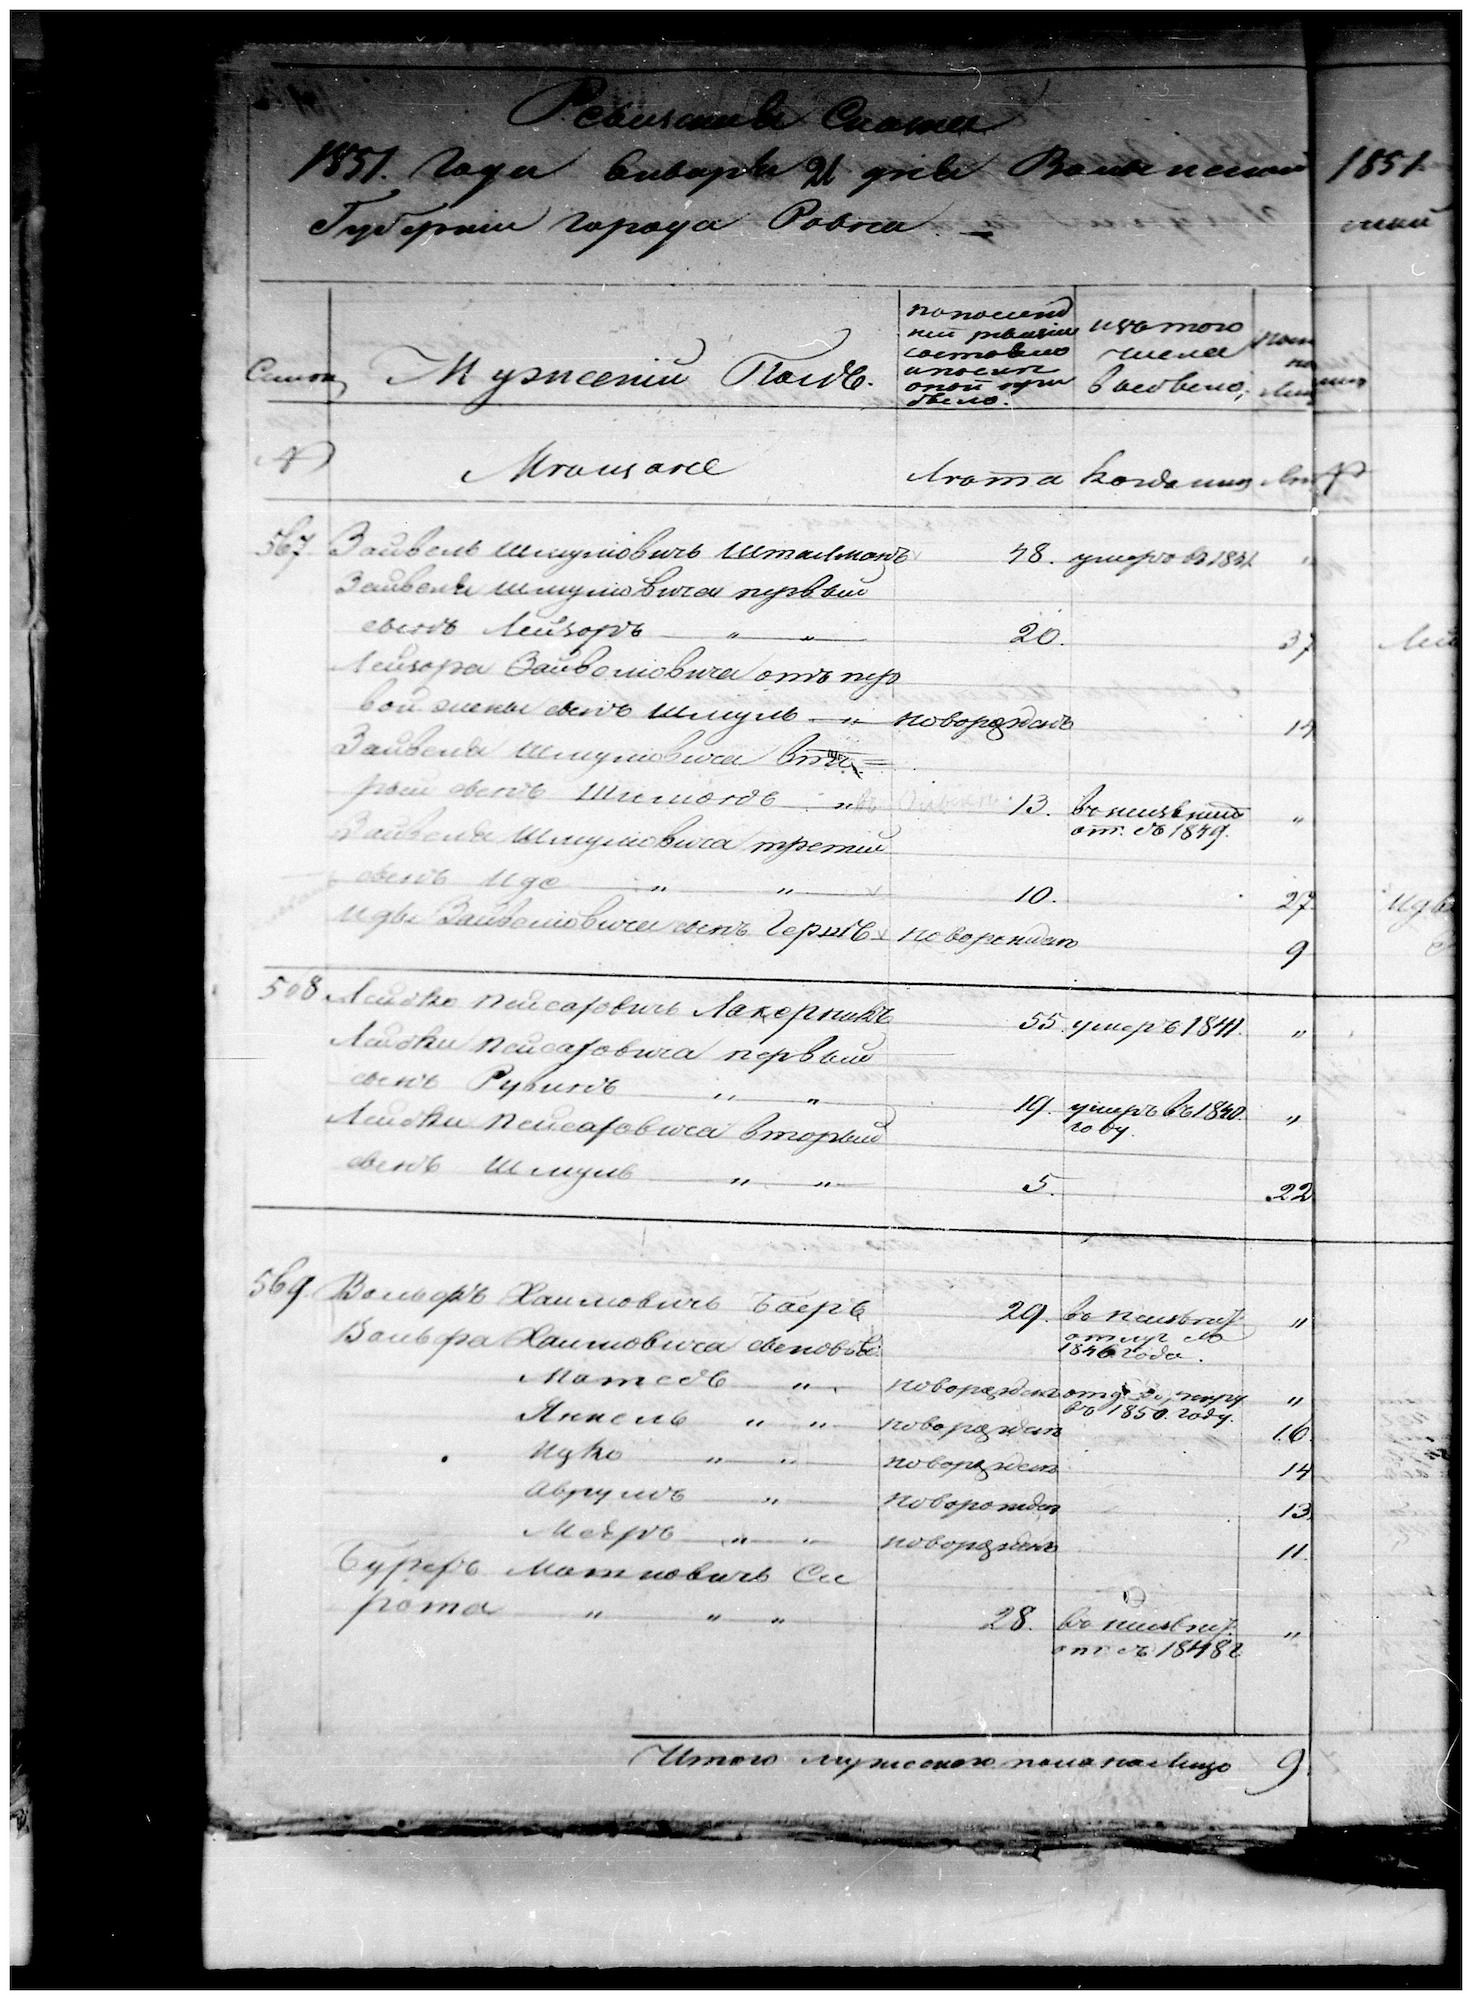 Ревизская Сказка
1851. Года Января 21 дня Волынской
Губернии города Ровна. –
1851
ской
Семьи
Мужеский Полъ.
по последней ревизии состояло и после оной прибыло.
изъ того числа выбыло,
№
Мещане
Лета
Когда именно
№
567. Зайвель Шмулiовичъ Штильманъ 48. умеръ въ 1841 "
Зайвеля Шмулiовича первый
сынъ Лейзоръ " " 20. 37
Лейзора Зайвелiовича отъ пер
вой жены сынъ Шмуль " новорожденъ 14
Зайвеля Шмулiовича вто=
рой сынъ Шимонъ " 13. въ неизвестной "
от. съ 1849.
Зайвеля Шмулiовича третий
сынъ Идо " " 10. 27
Иды Зайвелiовича сынъ Гершъ новорожден 9
568 Лейбко Пейсаховичъ Лакерникъ 55. умеръ 1841. "
Лейбки Пейсаховича первый
сынъ Рувинъ " " 19. умеръ въ 1840. "
году.
Лейбки Пейсаховича вторый
сынъ Шмуль " " 5. 22
569. Вольфъ Хаимовичъ Баеръ 29. въ неизвест. "
отлуч. съ
1846 года.
Вольфа Хаимовича сыновья
Матесъ " новорожден "
въ 1850. году.
Янкель " " новорожден 16.
Ицко " " новорожден 14
Аврумъ " новорожден 13
Мееръ " " новорожден 11.
Матиовичъ Си
рота " " " 28. въ неизвест. "
от. съ 1848 г
Итого мужеского пола на лицо 9.